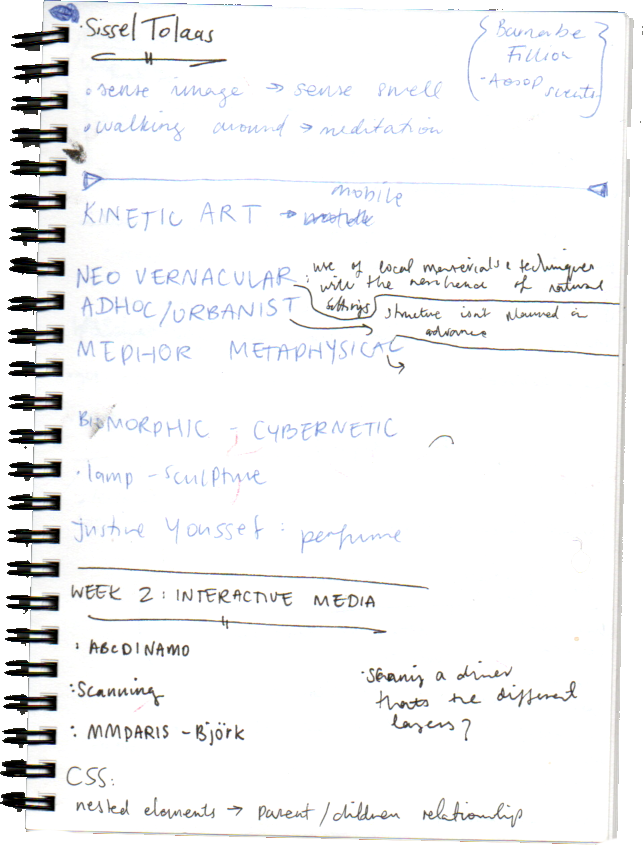 ·Sissel Tolaas
Barnabe
Fillion
-Aesop
scents
• sense image → sense smell
• walking around → meditation
mobile
KINETIC ART →
NEO VERNACULAR : use of local materials & techniques
with the of natural
settings
ADHOC/URBANIST structure isn't planned in
advance
METAPHYSICAL
BIOMORPHIC - CYBERNETIC
· lamp - sculpture
justine Youssef : perfume
WEEK 2 : INTERACTIVE MEDIA
: ABCDINAMO
: Scanning
: MMPARIS - Björk
· a diner
thats the different
layers?
CSS:
nested elements → parent/children relationship